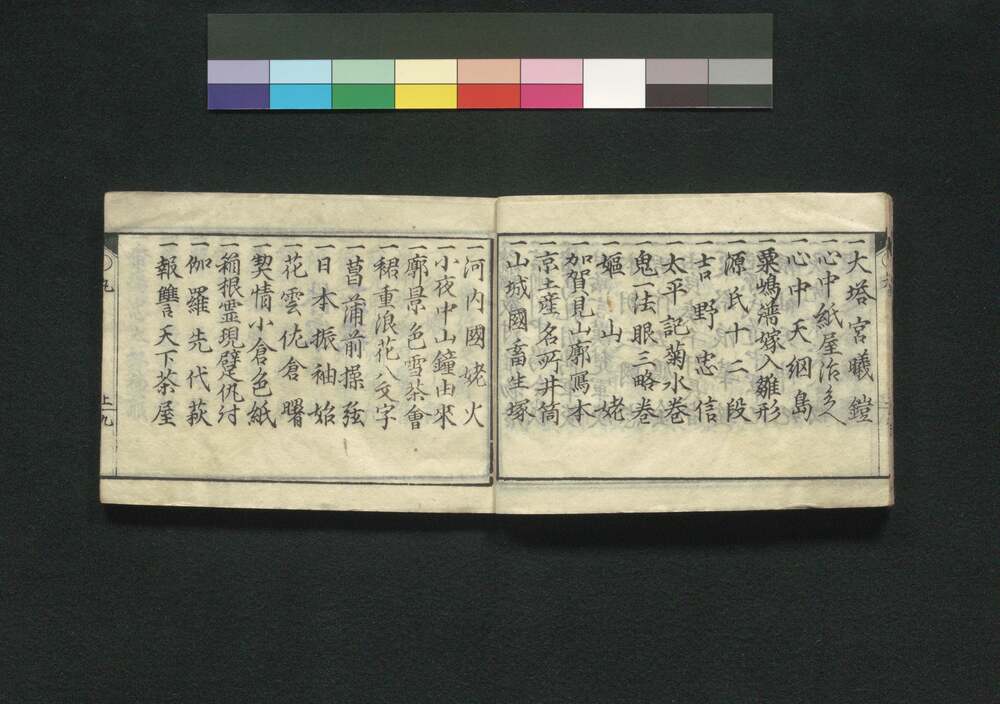 一大塔宮曦鎧
一心中紙屋治兵へ
一心中天網島
一粟嶋譜嫁入雛形
一源氏十二段
一吉野忠信
一太平記菊水巻
一鬼一法眼三略巻
一嫗山姥
一加賀見山廓寫本
一京土産名所井筒
一山城國畜生塚
一河内國姥火
一小夜中山鐘由來
一廓景色雪茶會
一裙重浪花八文字
一菖蒲前操弦
一日本振袖始
一花雲佐倉曙
一契情小倉色紙
一箱根霊現躄仇討
一伽羅先代萩
一報讐天下茶屋
上九